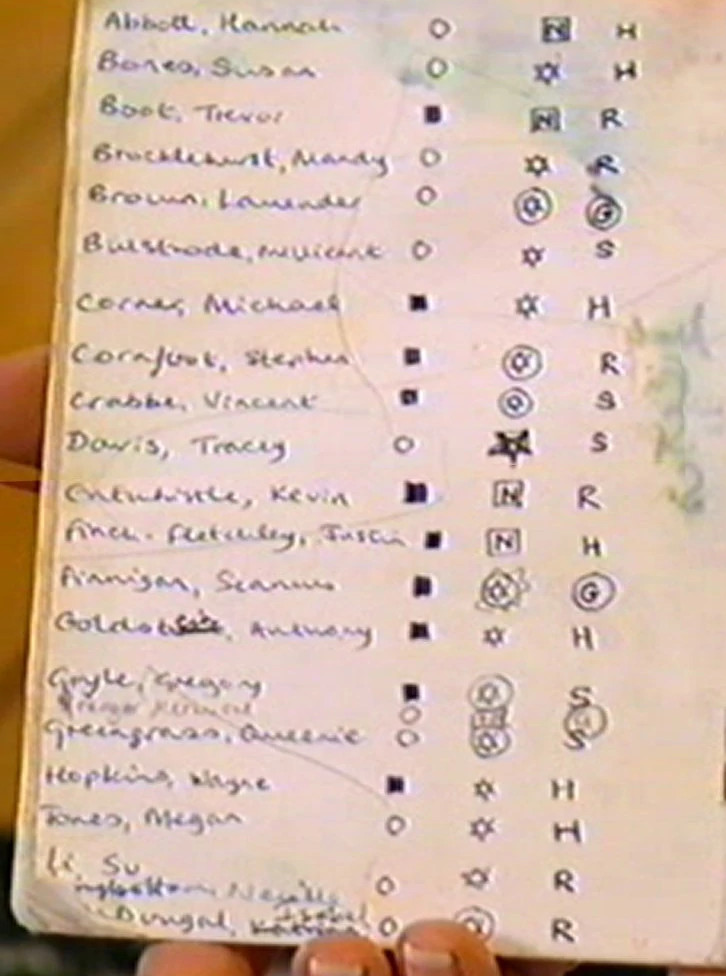 Abbott, Hannah N H
Bones, Susan H
Boot, Trevor N R
Brocklehurst, Mandy R
Brown, Lavender G
Bulstrode, Millicent S
Corner, Michael H
Cornfoot, Stephen R
Crabbe, Vincent S
Davis, Tracey S
Entwhistle, Kevin N R
Finch-Fletchley, Justin N H
Finnigan, Seamus G
Anthony H
Goyle, Gregory S
Greengrass, Queenie S
Hopkins, Wayne H
Jones, Megan H
Li, Su R
Neville
Isobel
R